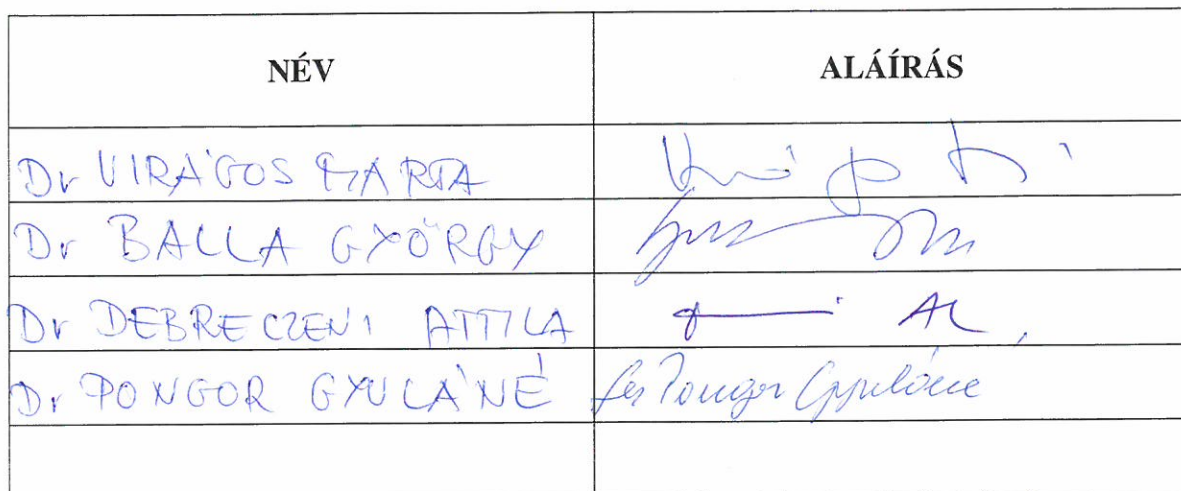 NÉV ALÁÍRÁS
Dr VIRÁGOS MÁRTA
Dr BALLA GYÖRGY
Dr DEBRECZENI ATTILA
Dr PONGOR GYULÁNÉ Pongor Gyuláné